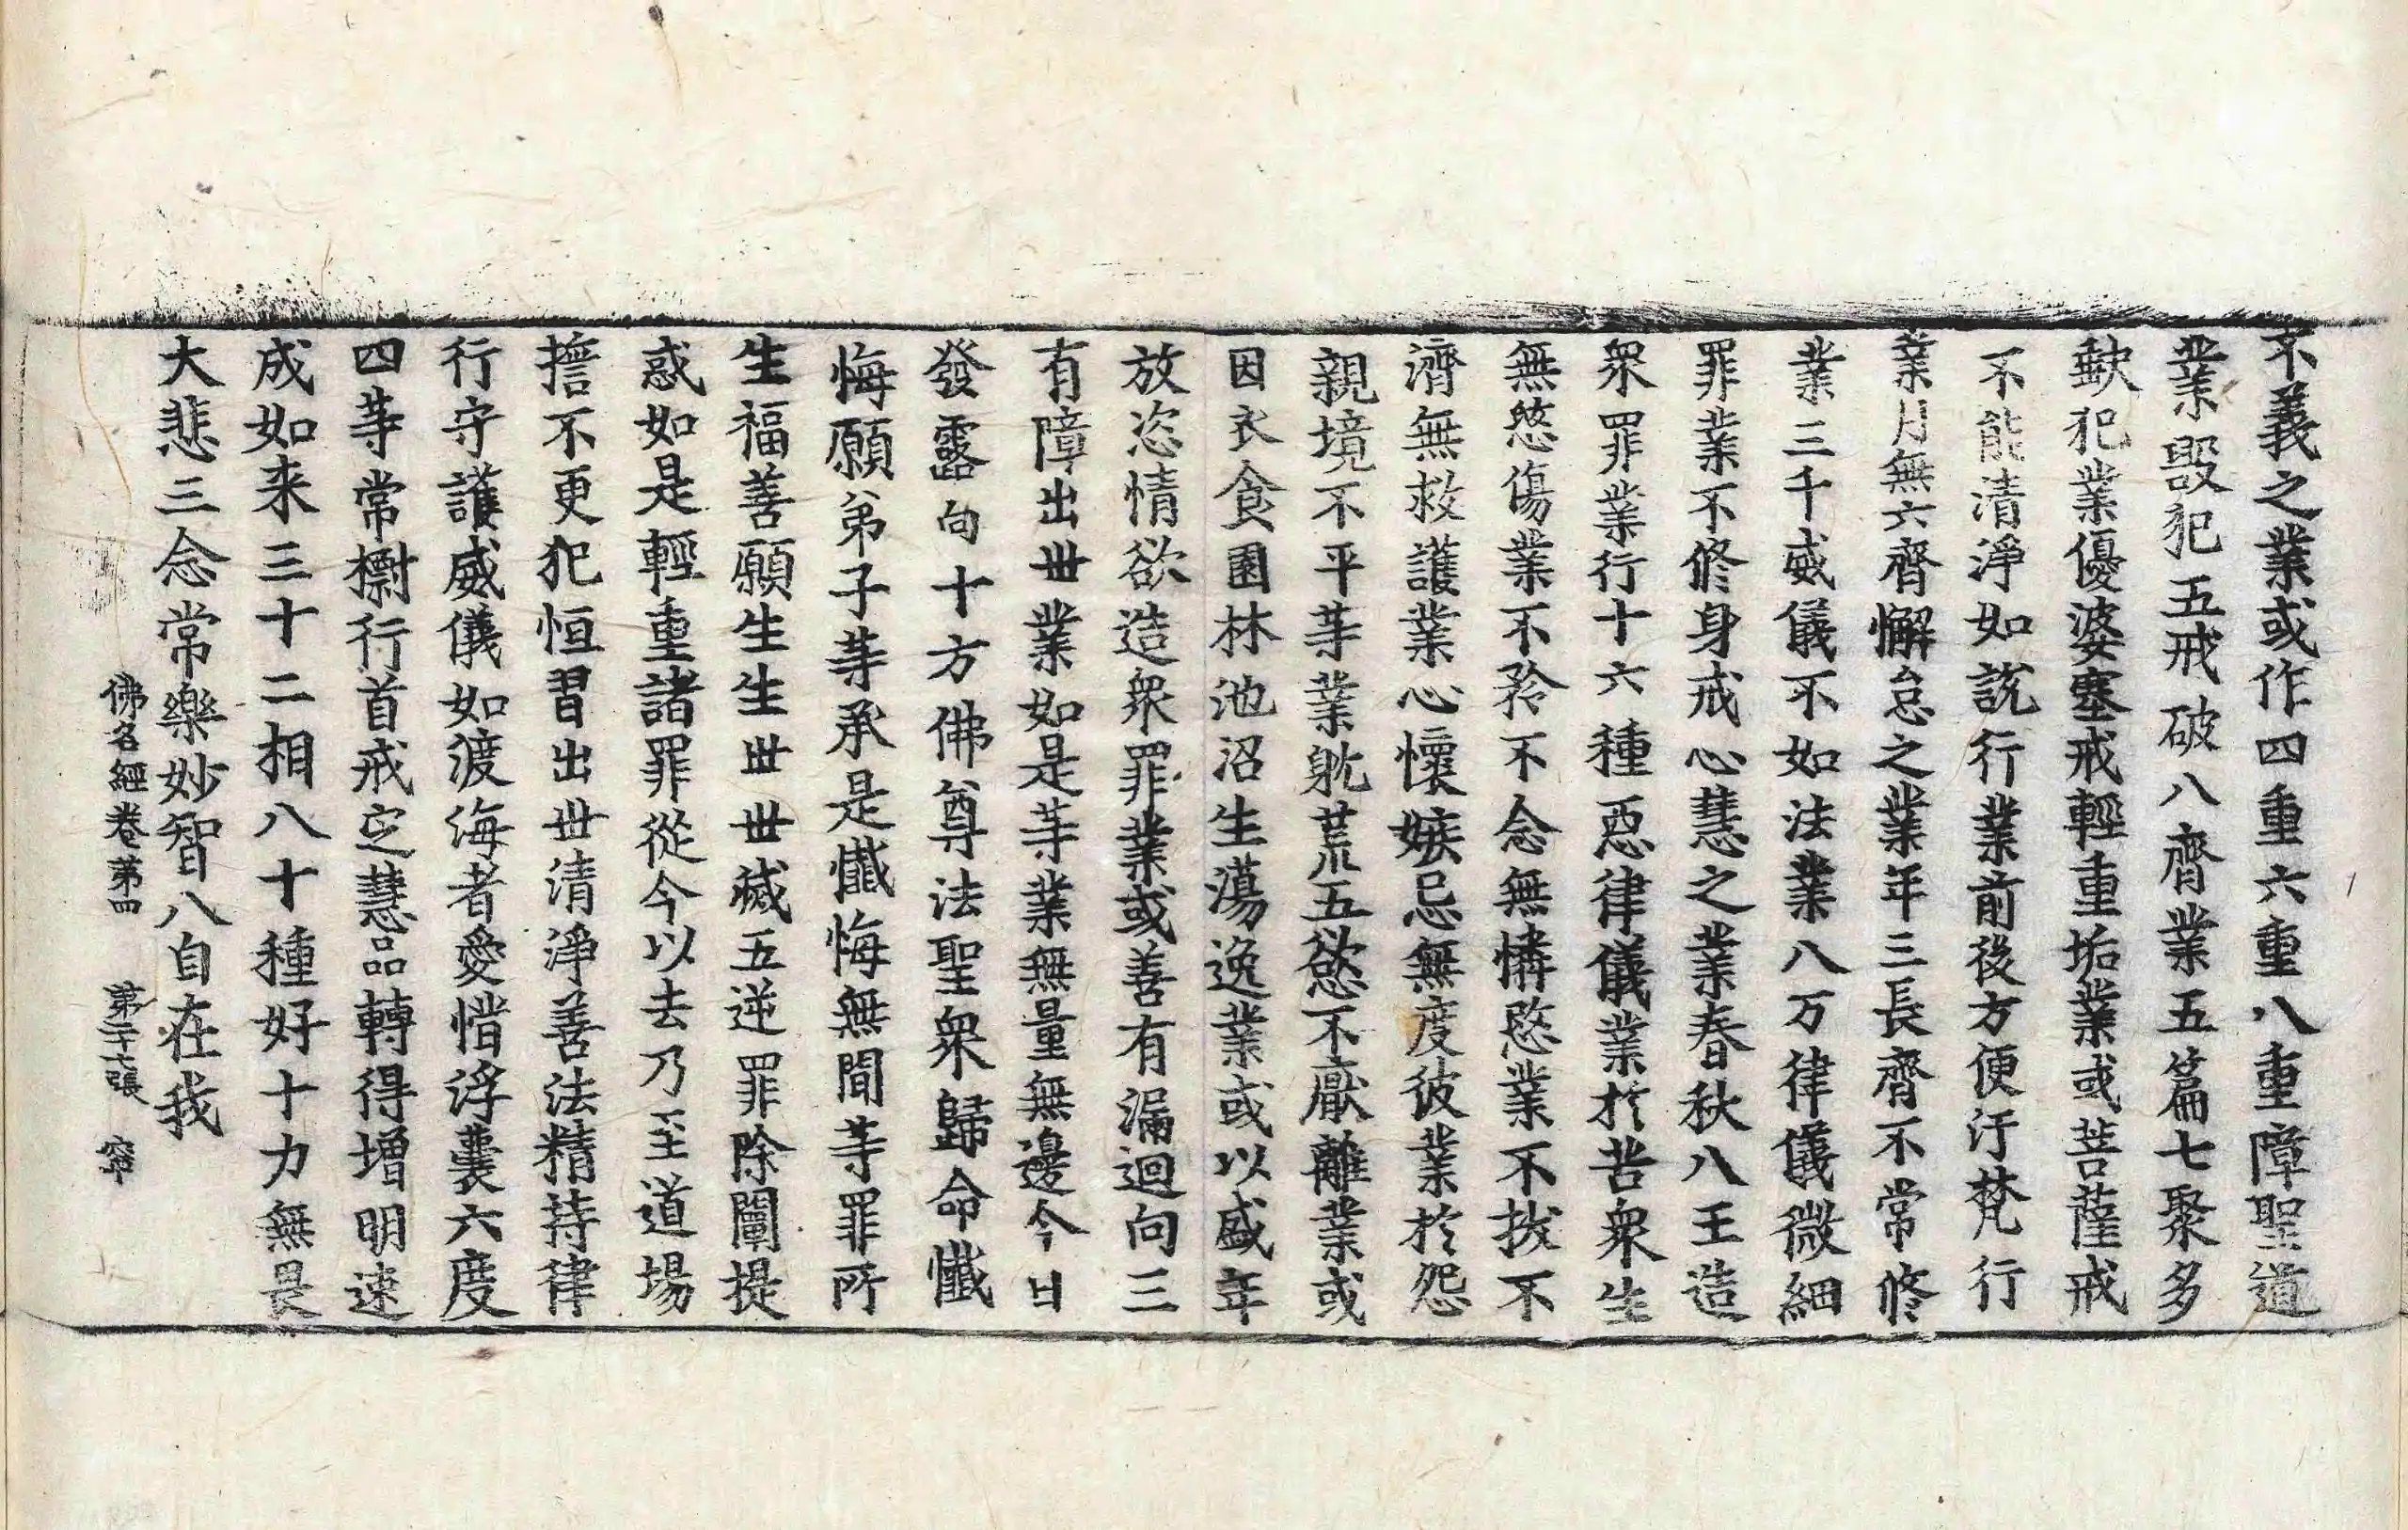 不義之業或作四重六重八重障聖道
業毀犯五戒破八齊業五篇七聚多
缺犯業優婆塞戒輕重垢業或菩薩戒
不能清淨如說行業前後方便汙梵行
業月無六齊懈怠之業年三長齊不常修
業三千威儀不如法業八万律儀微細
罪業不修身戒心慧之業春秋八王造
衆罪業行十六種惡律儀業於苦衆生
無愍傷業不矜不念無憐愍業不拔不
濟無救護業心懷嫉忌無度彼業於怨
親境不平等業躭荒五慾不猒離業或
因衣食園林池沼生蕩逸業或以盛年
放恣情欲造衆罪業或善有漏迴向三
有障出世業如是等業無量無邊今日
發露向十方佛尊法聖衆歸命懺
悔願弟子等承是懺悔無間等罪所
生福善願生生世世滅五逆罪除闡提
惑如是輕重諸罪從今以去乃至道場
擔不更犯恒習出世清淨善法精持律
行守護威儀如渡海者愛惜浮囊六度
四等常摽行首戒定慧品轉得增明速
成如来三十二相八十種好十力無畏
大悲三念常樂妙智八自在我
佛名經卷第四 第二十六張